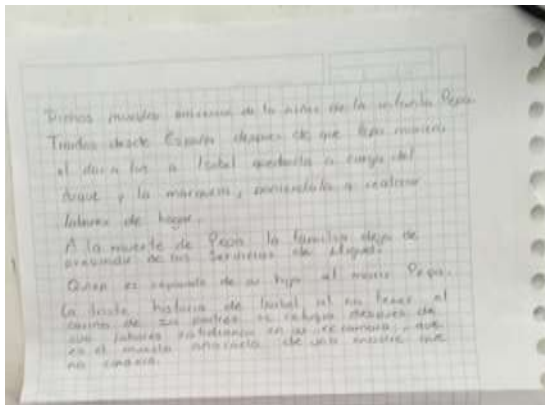 Dichos muebles de la niñez de la infanta Pepa.
Traidos desde España despues de que Pepa muriera
al dar a luz a Isabel quedarla a cargo del
duque y la marquesa, poniendola a realizar
labores de hogar.
A la muerte de Pepa la familia deja de
prescindir de los servicios de Miguel.
Quien es separado de su hija al morir Pepa.
La triste historia de Isabel al no tener el
cariño de sus padres se refugia despues de
sus labores cotidianas en su recamara, que
es el muestra de una madre que
no conocio.